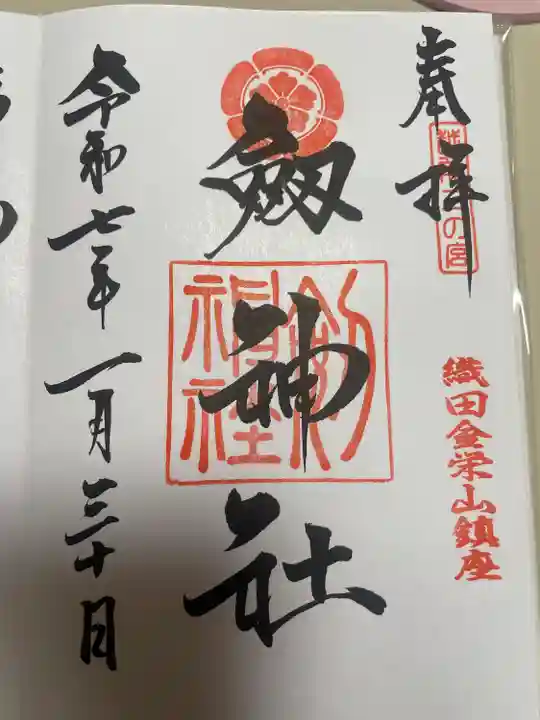 奉拝
越前二の宮
織田金栄山鎮座
劔神社
劔神社
令和七年一月三十日